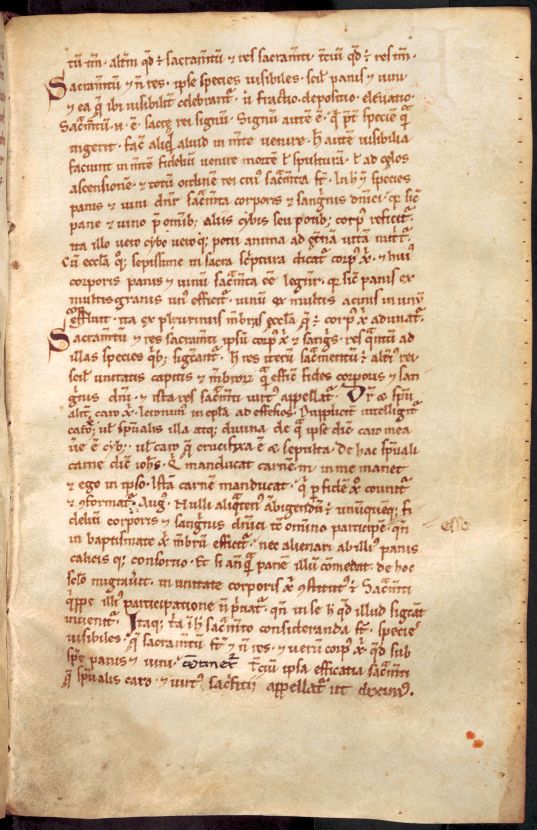 tũ tm̃ · altm̃ qd̃ ⁊ sacram̃tũ ⁊ res sacram̃ti · tc̃iũ qd̃ ⁊ res tm̃ ·
Sacram̃tũ ⁊ ñ res · ipse species uisibiles · scił panis ⁊ uini
⁊ ea q̃ ibi uisibilit̃ celebrant᷑ · ut fractio · depositio · eleuatio ·
Sac̃m̃tũ · n · ẽ · sacrę rei signũ · Signũ autẽ ẽ · q̃ p̃t speciẽ q̃
ingerit · fac̃ aliq̃ aliud in m̃te uenire · h̃ autẽ uisibilia
faciunt in m̃te fideliũ uenire mortẽ ł sepulturã · ł ad cęlos
ascensionẽ · ⁊ totũ ordinẽ rei cui᷒ sac̃m̃ta st̃ · In hi᷒ ⁊ species
panis ⁊ uini dn̄r sac̃m̃ta corporis ⁊ sang̃nis dñici · q̃ sic̃
pane ⁊ uino p̃ om̃ib; aliis cybis seu potib; corp᷒ reficit᷑ ·
ita illo uero cybo uero q; potu anima ad et̃nã uitã nut̃t᷑ ·
Cũ eccła q; sepissime in sacra sc̃ptura dicat᷑ corp᷒ x̃ · ⁊ hui᷒
corporis panis ⁊ uinũ sac̃m̃ta ẽe legũt᷑ · q̃ sic̃ panis ex
multis granis un᷒ efficit᷑ · uinũ ex multis acinis in unũ
effluit · ita ex plurimis m̃bris eccła q̃ ⁊ corp᷒ x̃ adunat᷑ ·
Sacram̃tũ ⁊ res sacram̃ti ipsũ corp᷒ x̃ ⁊ sang̃s · res q̃ntũ ad
illas species q̃b; sig̃cant᷑ · h̃ res iterũ sac̃mentũ ⁊ alt̃i᷒ rei ·
scił unitatis capitis ⁊ m̃bror̃ q̃ effic̃ fides corporis ⁊ san
g̃inis dñi · ⁊ ista res sac̃m̃ti uirt᷒ appellat᷑ ·
alit̃ caro x̃ · Ieronim᷒ in ep̃la ad effesios · Duplicit̃ intelligit᷑
caro · uł sp̃ualis illa atq; diuina de q̃ ipse dic̃ caro mea
ũe ẽ cyb᷒ · uł caro q̃ crucifixa ẽ ⁊ sepulta · de hac sp̃uali
carne dic̃ ioħs · Q̃ manducat carnẽ m̃ in me manet
⁊ ego in ipso · Istã carnẽ manducat · q̃ p̃ fidẽ x̃ counit᷑
⁊ ꝯformat᷑ · Aug᷒ · Nulli aliq̃ten᷒ ãbigendũ ⁊ unũquẽq; fi
deliũ corporis ⁊ sang̃nis dñici tc̃ om̃ino participẽ · qñ
in baptismate x̃ m̃brũ efficit᷑ · nec alienari ab illi᷒ panis
calicis q; consortio · &t si anq̃ panẽ illũ comedat · de hoc
sc̃lo migrauit · in unitate corporis x̃ ꝯstitut᷒ · Sac̃m̃ti
q̃ppe illi᷒ participatione ñ p̃uat᷑ · qñ in se h̃ qd̃ illud sig̃cat
inuenit᷑ · Itaq; t̃a i h̃ sac̃m̃to consideranda st̃ · species
uisibiles · q̃ sacram̃tũ st̃ ⁊ ñ res · ⁊ uerũ corp᷒ x̃ · qd̃ sub
sp̃e panis ⁊ uini · tc̃iũ ipsa efficatia sac̃m̃ti
q̃ sp̃ualis caro · ⁊ uirt᷒ sac̃ficii appellat᷑ ut dixim᷒ ·